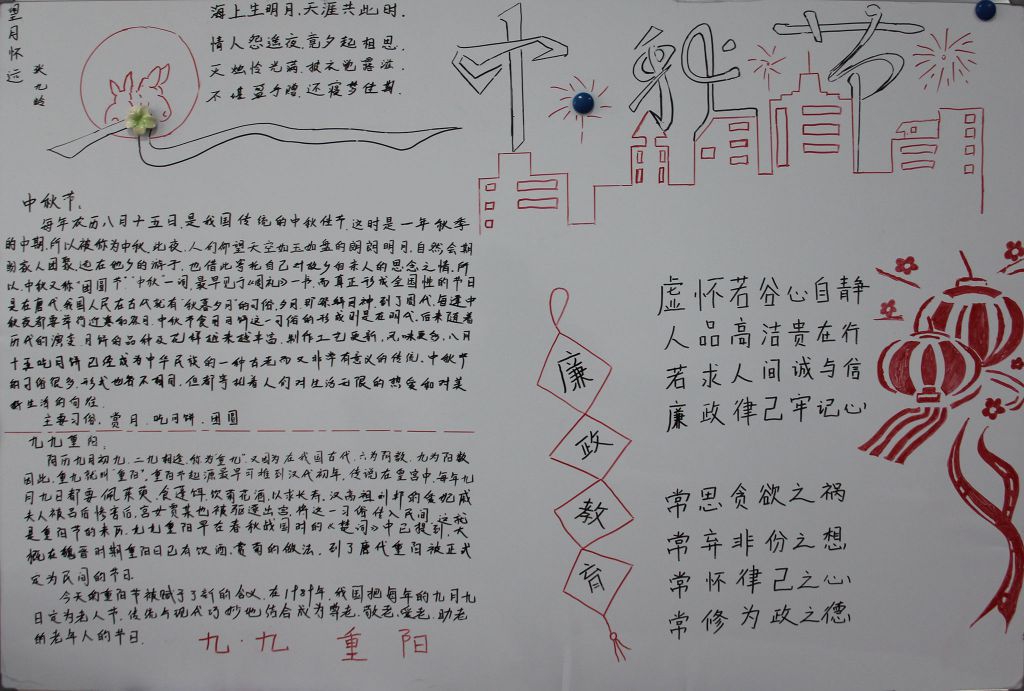 望月怀远
张九龄
海上生明月，天涯共此时．
情人怨遥夜，竟夕起相思．
灭烛怜光满，披衣觉露滋．
不堪盈手赠，还寝梦佳期．
中秋节
中秋节：
每年农历八月十五日，是我国传统的中秋佳节．这时是一年秋季
的中期，所以被称为中秋．此夜，人们仰望天空如玉如盘的朗朗明月，自然会期
盼家人团聚．远在他乡的游子，也借此寄托自己对故乡和亲人的思念之情．所
以，中秋又称“团圆节”“中秋”一词，最早已于《周礼》一书，而真正形成全国性的节日
是在唐代．我国人民在古代就有“秋暮夕月”的习俗．夕月，即祭拜月神．到了周代，每逢中
秋夜都要举行迎寒和祭月．中秋节食用月饼这一习俗的形成则是在明代．后来随着
历代的演变，月饼的品种及花样越来越丰富，制作工艺更新，风味更多．八月
十五吃月饼已经成为中华民族的一种古老而又非常有意义的传统．中秋节
的习俗很多，形式也各不相同，但都寄托着人们对生活无限的热爱和对美
好生活的向往．
主要习俗：赏月．吃月饼．团圆
九九重阳：
阴历九月初九，二九相逢，称为“重九”．又因为在我国古代，六为阴数，九为阳数
因此，重九就叫“重阳”．重阳节起源最早可推到汉代初年，传说在皇宫中，每年九
月九日都要佩茱萸，食蓬饵，饮菊花酒，以求长寿．汉高祖刘邦的爱妃戚
夫人被吕后惨害后，宫女贾某也被驱逐出宫，将这一习俗传入民间．这就
是重阳节的来历．尤尤重阳早在春秋战国时的《楚词》中已提到，大
概在魏晋时期重阳日已有饮酒、赏菊的做法，到了唐代重阳被正式
定为民间的节日．
今天的重阳节被赋予了新的含义，在1989年，我国把每年的九月九
日定为老人节，传统与现代巧妙地结合成为尊老．敬老．爱老．助老
的老年人的节日．
九·九 重阳
廉政教育
虚怀若谷心自静
人品高洁贵在行
若求人间诚与信
廉政律己牢记心
常思贪欲之祸
常弃非份之想
常怀律己之心
常修为政之德